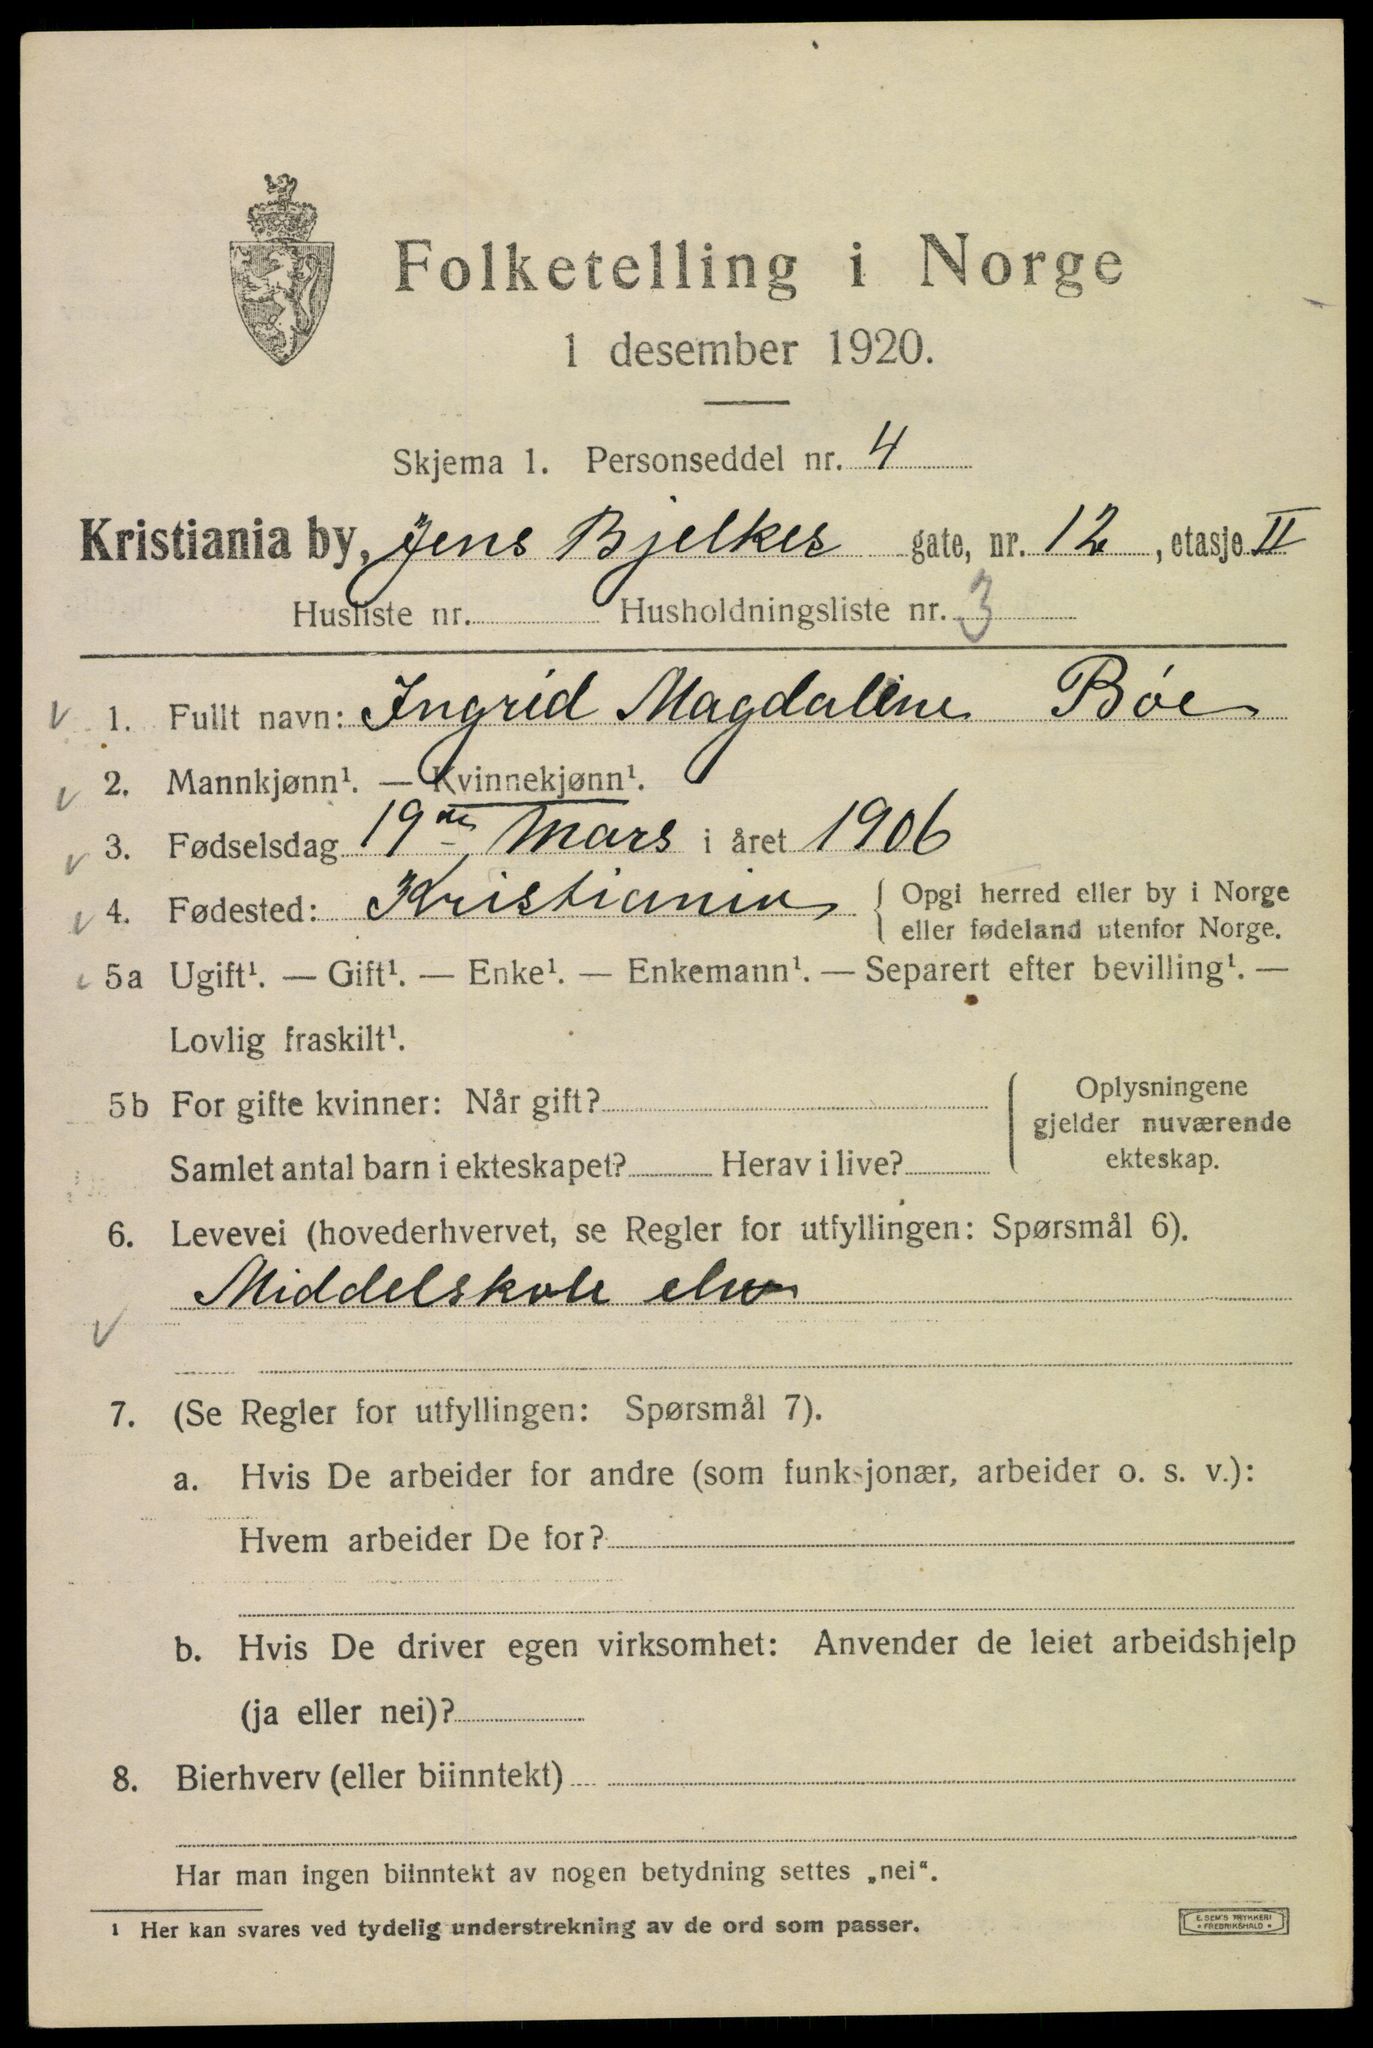 Folketelling i Norge
1 desember 1920.
Skjema 1. Personseddel nr. 4
Kristiania by, Jens Bjelkes gate, nr. 12, etasje II
Husliste nr. Husholdningsliste nr. 3
1. Fullt navn: Ingrid Magdalene Bøe
2. Mannkjønn¹. — Kvinnekjønn¹.
3. Fødselsdag 19de Mars i året 1906
4. Fødested: Kristiania { Opgi herred eller by i Norge
eller fødeland utenfor Norge.
5a Ugift¹. — Gift¹. — Enke¹. — Enkemann¹. — Separert efter bevilling¹. —
Lovlig fraskilt¹.
5b For gifte kvinner: Når gift?
Samlet antal barn i ekteskapet? Herav i live?
Oplysningene
gjelder nuværende
ekteskap.
6. Levevei (hovederhvervet, se Regler for utfyllingen: Spørsmål 6).
Middelskole elev
7. (Se Regler for utfyllingen: Spørsmål 7).
a. Hvis De arbeider for andre (som funksjonær, arbeider o. s. v.):
Hvem arbeider De for?
b. Hvis De driver egen virksomhet: Anvender de leiet arbeidshjelp
(ja eller nei)?
8. Bierhverv (eller biinntekt)
Har man ingen biinntekt av nogen betydning settes „nei“.
1 Her kan svares ved tydelig understrekning av de ord som passer.
E. SEM'S TRYKKERI
* FREDRIKSHALD *